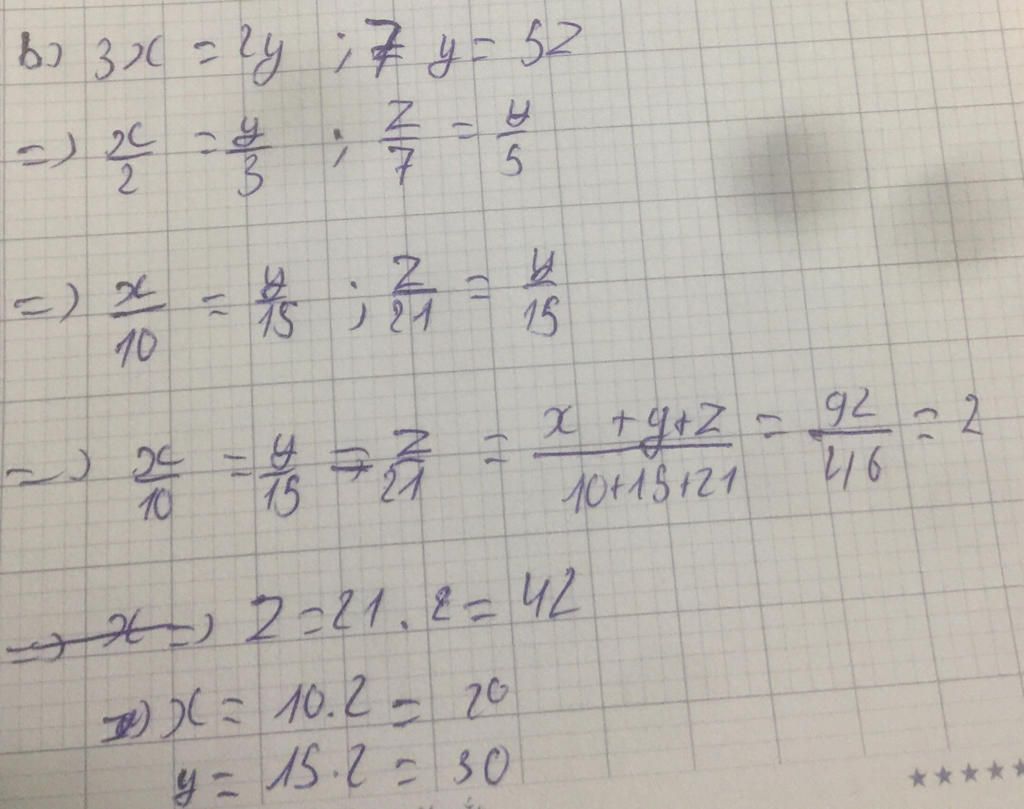 b) 3x = 2y ; 7 y = 5z
=> x/2 = y/3 ; z/7 = y/5
=> x/10 = y/15 ; z/21 = y/15
=> x/10 = y/15 = z/21 = (x + y + z)/(10+15+21) = 92/46 = 2
=> z = 21 . 2 = 42
=> x = 10.2 = 20
y = 15.2 = 30